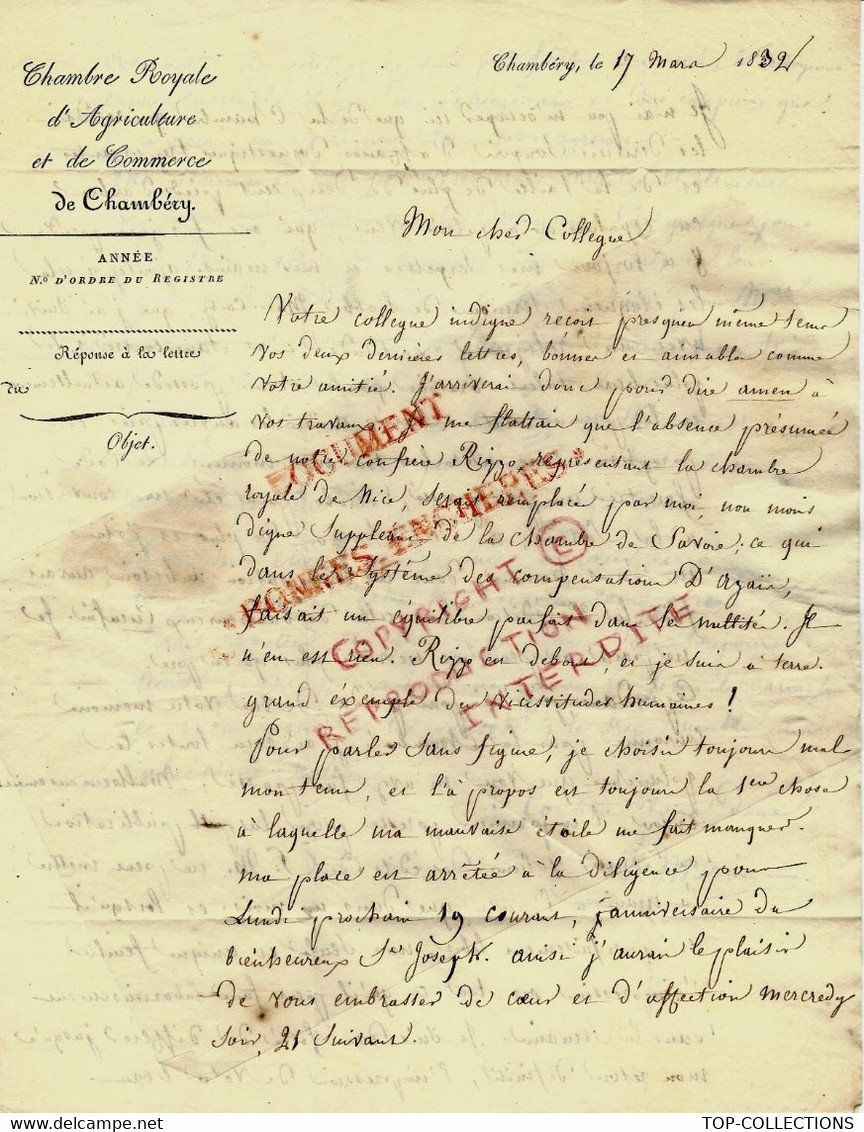 Chambre Royale
d'Agriculture
et de Commerce
de Chambéry.
ANNÉE
N.o D'ORDRE DU REGISTRE
Réponse à la lettre
du
Objet.
Chambéry, le 17 Mars 1832
Mon cher Collegue
Votre collegue indigne reçoit presqu'en même tems
vos deux dernières lettres, bonnes et aimables comme
votre amitié. J'arriverai donc pour dire amen à
vos travaux. Je me flattais que l'absence présumée
de notre confrère Rizzo, représentant la chambre
royale de Nice, serait remplacée par moi, non moins
digne suppleant de la chambre de Savoie; ce qui
dans le système des compensations D'azaïs,
faisait un équilibre parfait dans les nullités. Il
n'en est rien. Rizzo est debout, et je suis à terre.
grand éxemple des vicissitudes humaines!
Pour parler sans figure, je choisis toujours mal
mon tems, et l'à propos est toujours la 1ere chose
à laquelle ma mauvaise étoile me fait manquer.
ma place est arrêtée à la diligence pour
Lundi prochain 19 courant, janniversaire du
bienheureux St Joseph. ainsi j'aurai le plaisir
de vous embrasser de cœur et d'affection mercredy
soir, 21 suivant.
DOCUMENT
"BONNES ENCHERES"
COPYRIGHT ©
REPRODUCTION
INTERDITE
TOP-COLLECTIONS